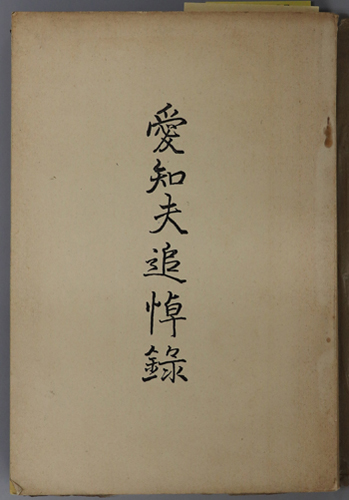 愛知夫追悼録